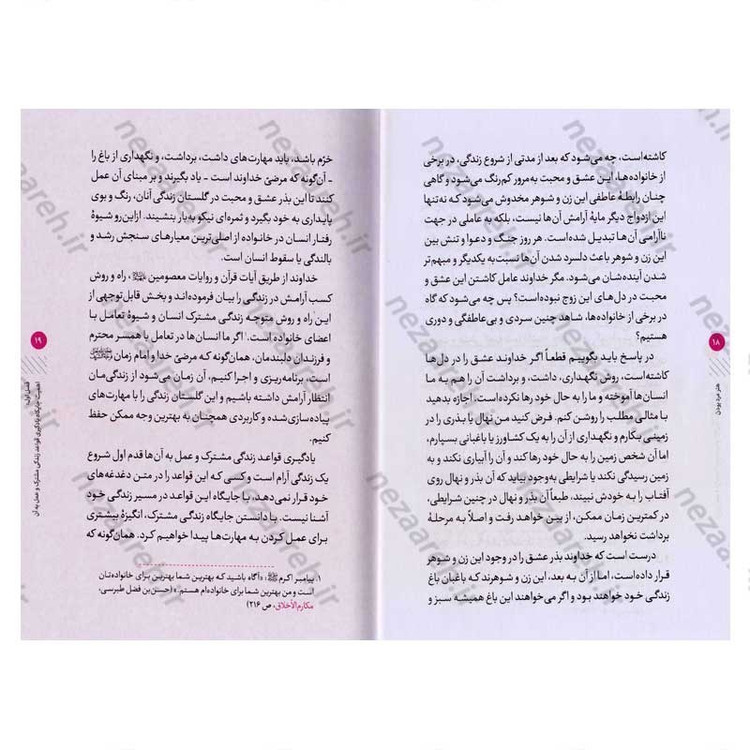 کاشته‌است، چه می‌شود که بعد از مدتی از شروع زندگی، در برخی
از خانواده‌ها، این عشق و محبت به‌مرور کم‌رنگ می‌شود و گاهی
چنان رابطهٔ عاطفی این زن و شوهر مخدوش می‌شود که نه‌تنها
این ازدواج دیگر مایهٔ آرامش آن‌ها نیست، بلکه به عاملی در جهت
ناآرامی آن‌ها تبدیل شده‌است. هر روز جنگ و دعوا و تنش بین
زن و شوهر باعث دلسرد شدن آن‌ها نسبت به یکدیگر و مبهم‌تر
شدن آینده‌شان می‌شود. مگر خداوند عامل کاشتن این عشق و
محبت در دل‌های این زوج نبوده‌است؟ پس چه می‌شود که گاه
در برخی از خانواده‌ها، شاهد چنین سردی و بی‌عاطفگی و دوری
هستیم؟
در پاسخ باید بگوییم قطعاً اگر خداوند عشق را در دل‌ها
کاشته‌است، روش نگهداری، داشت، و برداشت آن را هم به ما
انسان‌ها آموخته و ما را به حال خود رها نکرده‌است. اجازه بدهید
با مثالی مطلب را روشن کنم. فرض کنید من نهال یا بذری را در
زمینی بکارم و نگهداری از آن را به یک کشاورز یا باغبانی بسپارم،
اما آن شخص زمین را به حال خود رها کند و آن را آبیاری نکند و به
زمین رسیدگی نکند یا شرایطی به‌وجود بیاید که آن بذر و نهال روی
آفتاب را به خودش نبیند، طبعاً آن بذر و نهال در چنین شرایطی،
در کمترین زمان ممکن، از بین خواهد رفت و اصلاً به مرحلهٔ
برداشت نخواهد رسید.
درست است که خداوند بذر عشق را در وجود این زن و شوهر
قرار داده‌است، اما از آن به بعد، این زن و شوهرند که باغبان باغ
زندگی خود خواهند بود و اگر می‌خواهند این باغ همیشه سبز و
۱۸
هنر مرد بودن
خرّم باشد، باید مهارت‌های داشت، برداشت، و نگهداری از باغ را
- آن‌گونه که مرضیّ خداوند است - یاد بگیرند و بر مبنای آن عمل
کنند تا این بذر عشق و محبت در گلستان زندگی آنان، رنگ و بوی
پایداری به خود بگیرد و ثمره‌ای نیکو به‌بار بنشیند. ازاین‌رو شیوهٔ
رفتار انسان در خانواده از اصلی‌ترین معیارهای سنجش رشد و
بالندگی یا سقوط انسان است.
خداوند از طریق آیات قرآن و روایات معصومین، راه و روش
کسب آرامش در زندگی را بیان فرموده‌اند و بخش قابل‌توجهی از
این راه و روش متوجه زندگی مشترک انسان و شیوهٔ تعامل با
اعضای خانواده است.۱ اگر ما انسان‌ها در تعامل با همسر محترم
و فرزندان دلبندمان، همان‌گونه که مرضیّ خدا و امام زمان
است، برنامه‌ریزی و اجرا کنیم، آن زمان می‌شود از زندگی‌مان
انتظار آرامش داشته باشیم و این گلستان زندگی را با مهارت‌های
پیاده‌سازی‌شده و کاربردی همچنان به بهترین وجه ممکن حفظ
کنیم.
یادگیری قواعد زندگی مشترک و عمل به آن‌ها قدم اول شروع
یک زندگی آرام است و کسی که این قواعد را در متن دغدغه‌های
خود قرار نمی‌دهد، با جایگاه این قواعد در مسیر زندگی خود
آشنا نیست. با دانستن جایگاه زندگی مشترک، انگیزهٔ بیشتری
برای عمل کردن به مهارت‌ها پیدا خواهیم کرد. همان‌گونه که
۱. پیامبر اکرم: «آگاه باشید که بهترین شما بهترین برای خانواده‌تان
است و من بهترین شما برای خانواده‌ام هستم.» (حسن‌بن فضل طبرسی،
مکارم‌الأخلاق، ص ۲۱۶)
۱۹
فصل اول:
اهمیت جایگاه یادگیری قواعد زندگی مشترک و عمل به آن
nezaareh.ir